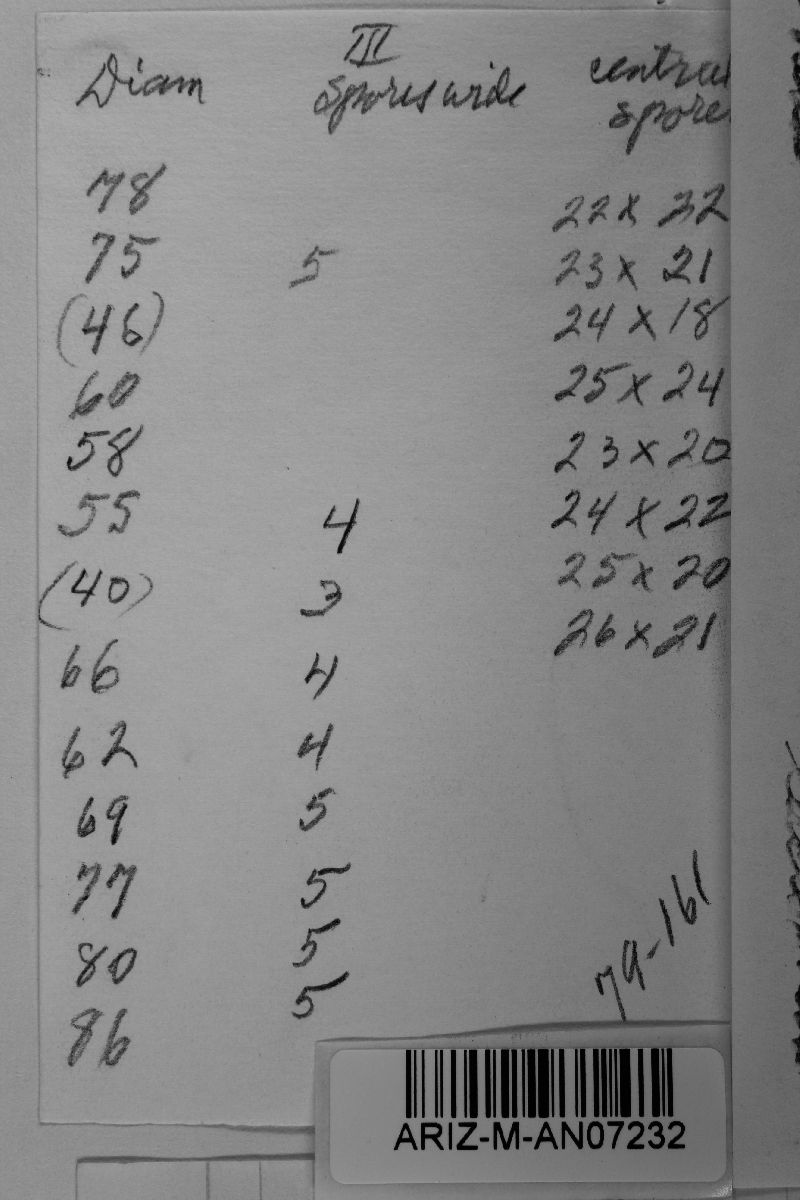 III
Diam Spores wide central
spore
78 22 x 22
75 5 23 x 21
(46) 24 x 18
60 25 x 24
58 23 x 20
55 4 24 x 22
(40) 3 25 x 20
66 4 26 x 21
62 4
69 5
77 5
80 5
86 5
79-161
ARIZ-M-AN07232